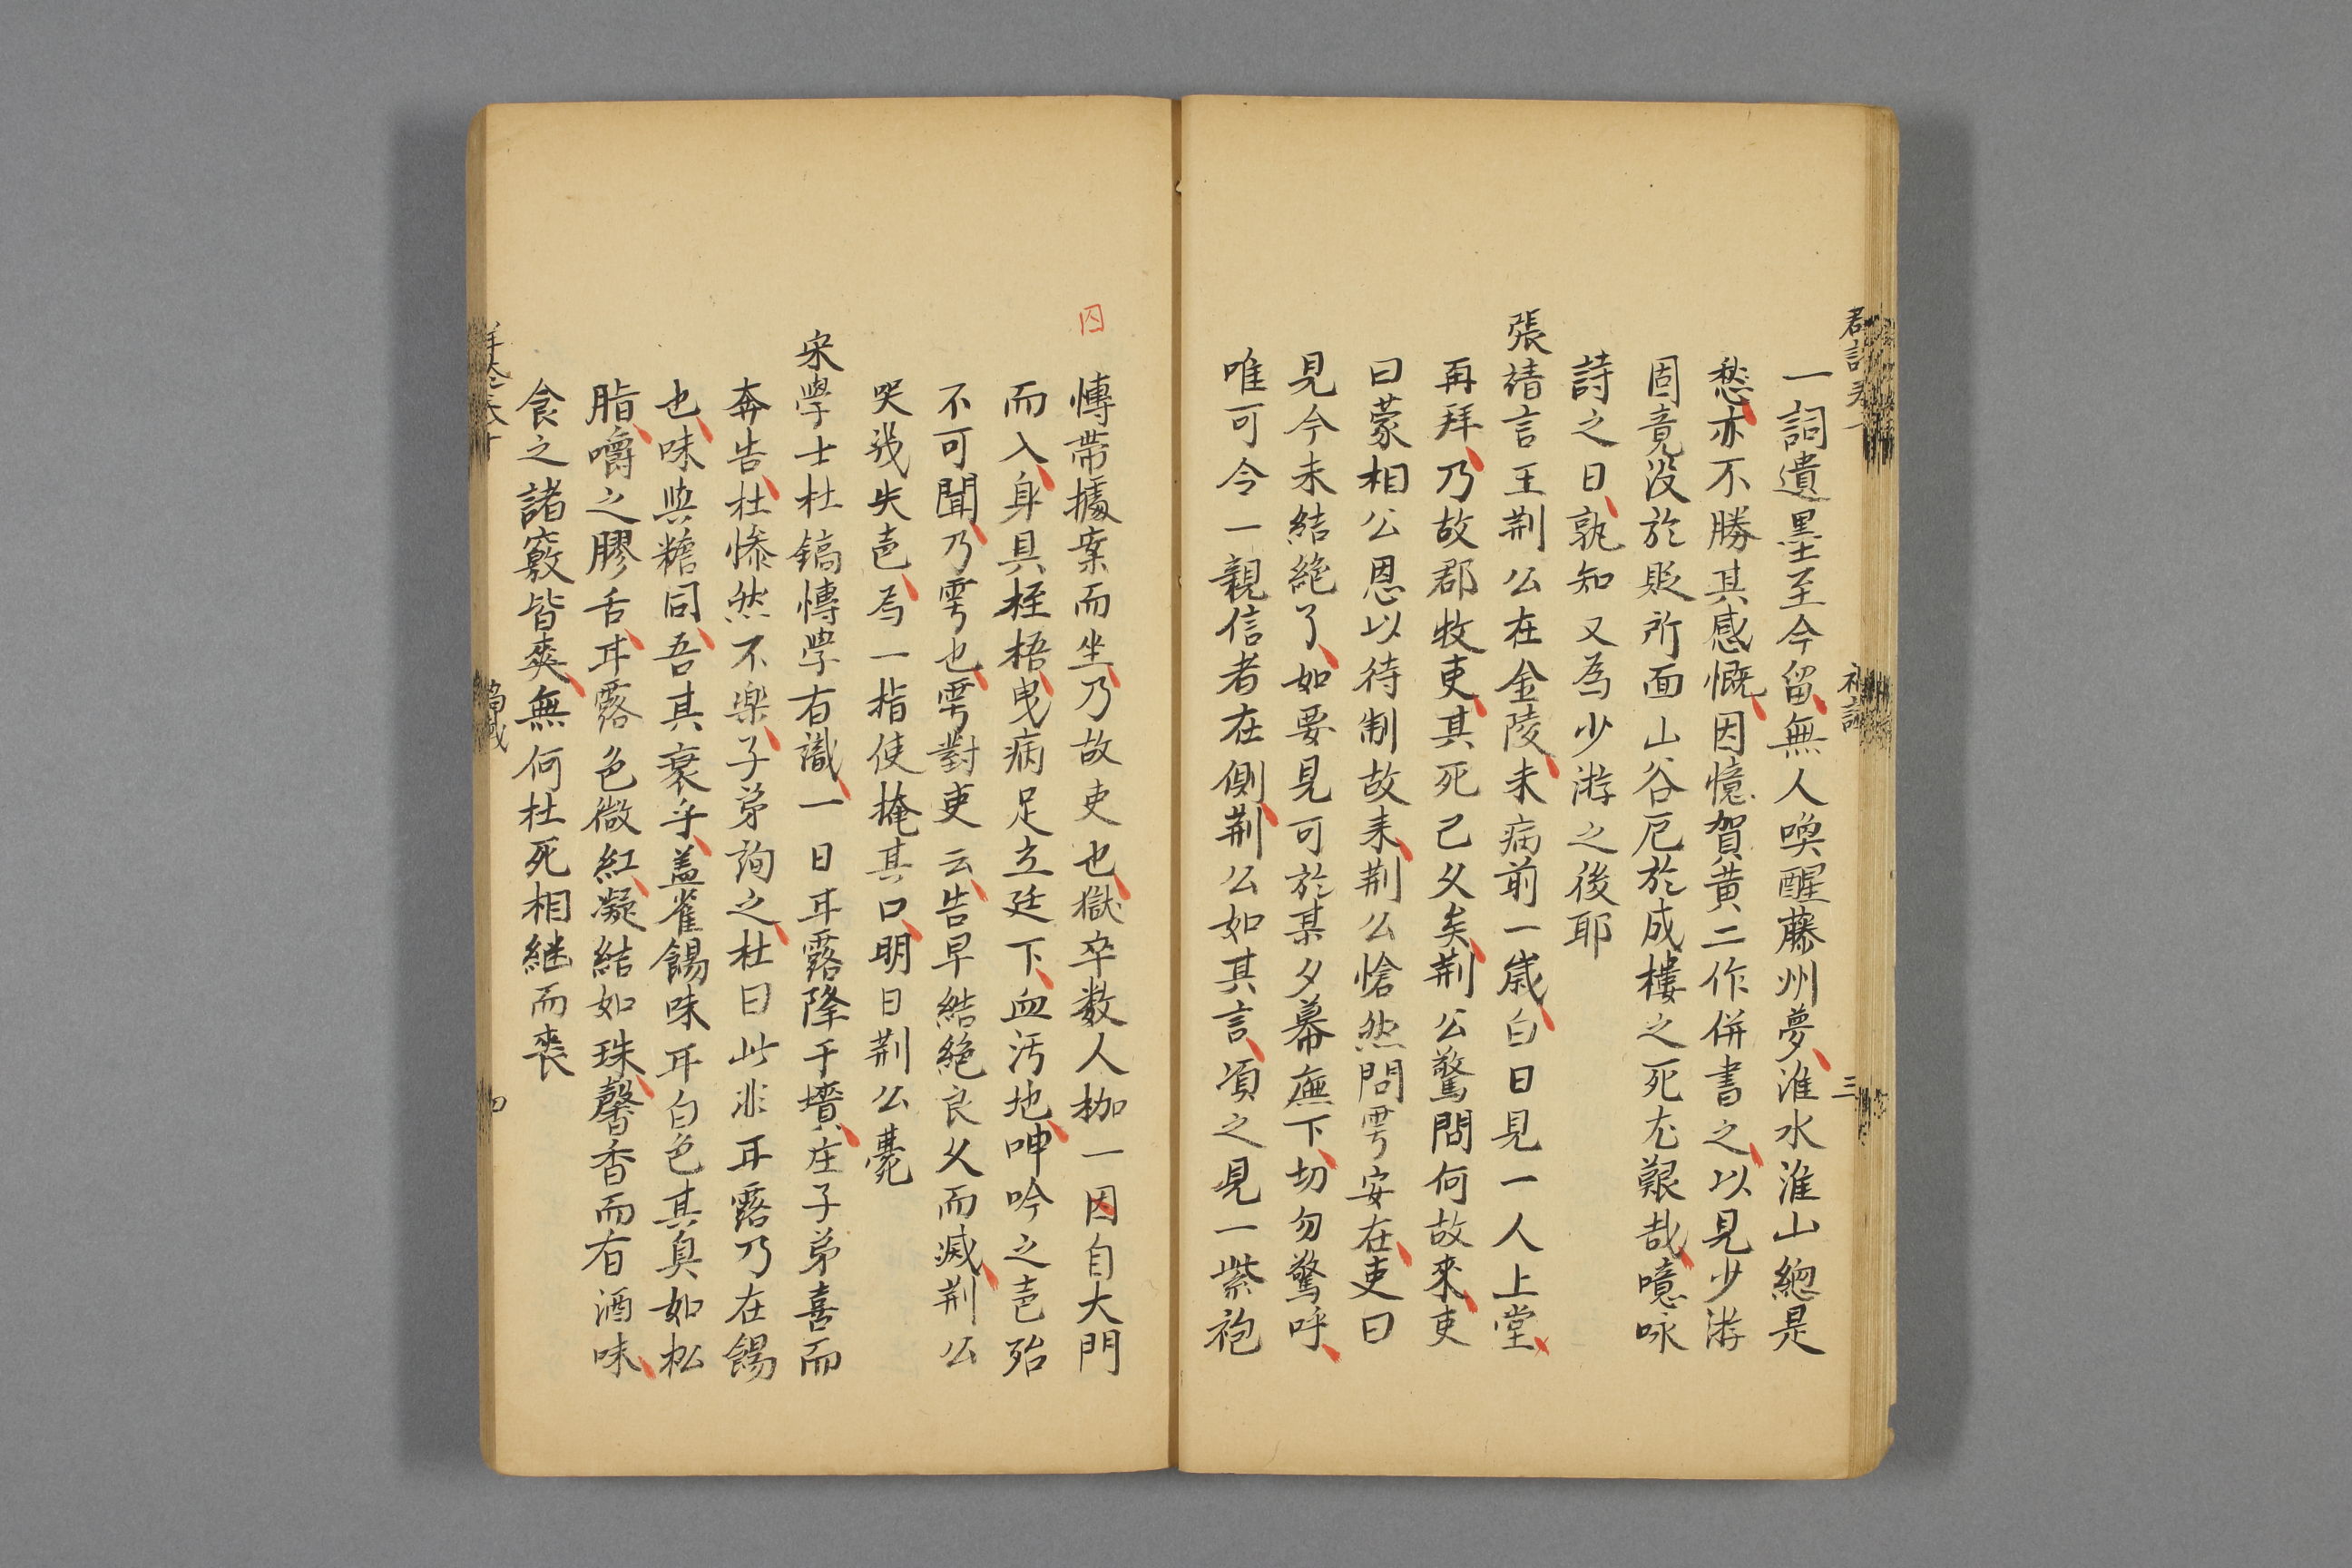 一詞遺墨至今留無人喚醒藤州夢淮水淮山緫是
愁亦不勝其感慨因憶賀黄二作併書之以見少游
固竟没於貶所面山谷厄於戍樓之死尤艱哉噫咏
詩之日孰知又為少游之後耶
張靖言王荆公在金陵未病前一歳白日見一人上堂
再拜乃故郡牧吏其死已久矣荆公驚問何故來吏
曰蒙相公恩以待制故来荆公愴然問雱安在吏曰
見今未結絶了如要見可於某夕幕廡下切勿驚呼
唯可令一親信者在側荆公如其言頃之見一紫袍
囚
愽帶據案而坐乃故吏也獄卒数人枷一因自大門
而入身具桎梏曳病足立廷下血汚地呻吟之𡔷殆
不可聞乃雱也雱對吏云告早結絶良久而滅荆公
哭㡬失𡔷為一指使掩其口明日荆公薨
宋學士杜鎬愽學有識一日耳露降于墳庄子弟喜而
奔告杜慘然不楽子弟詢之杜曰此非耳露乃在餳
也味與糖同吾其衰乎盖雀餳味耳白色其臭如松
脂嚼之膠舌耳露色微紅凝結如珠馨香而有酒味
食之諸竅皆爽無何杜死相継而喪
三